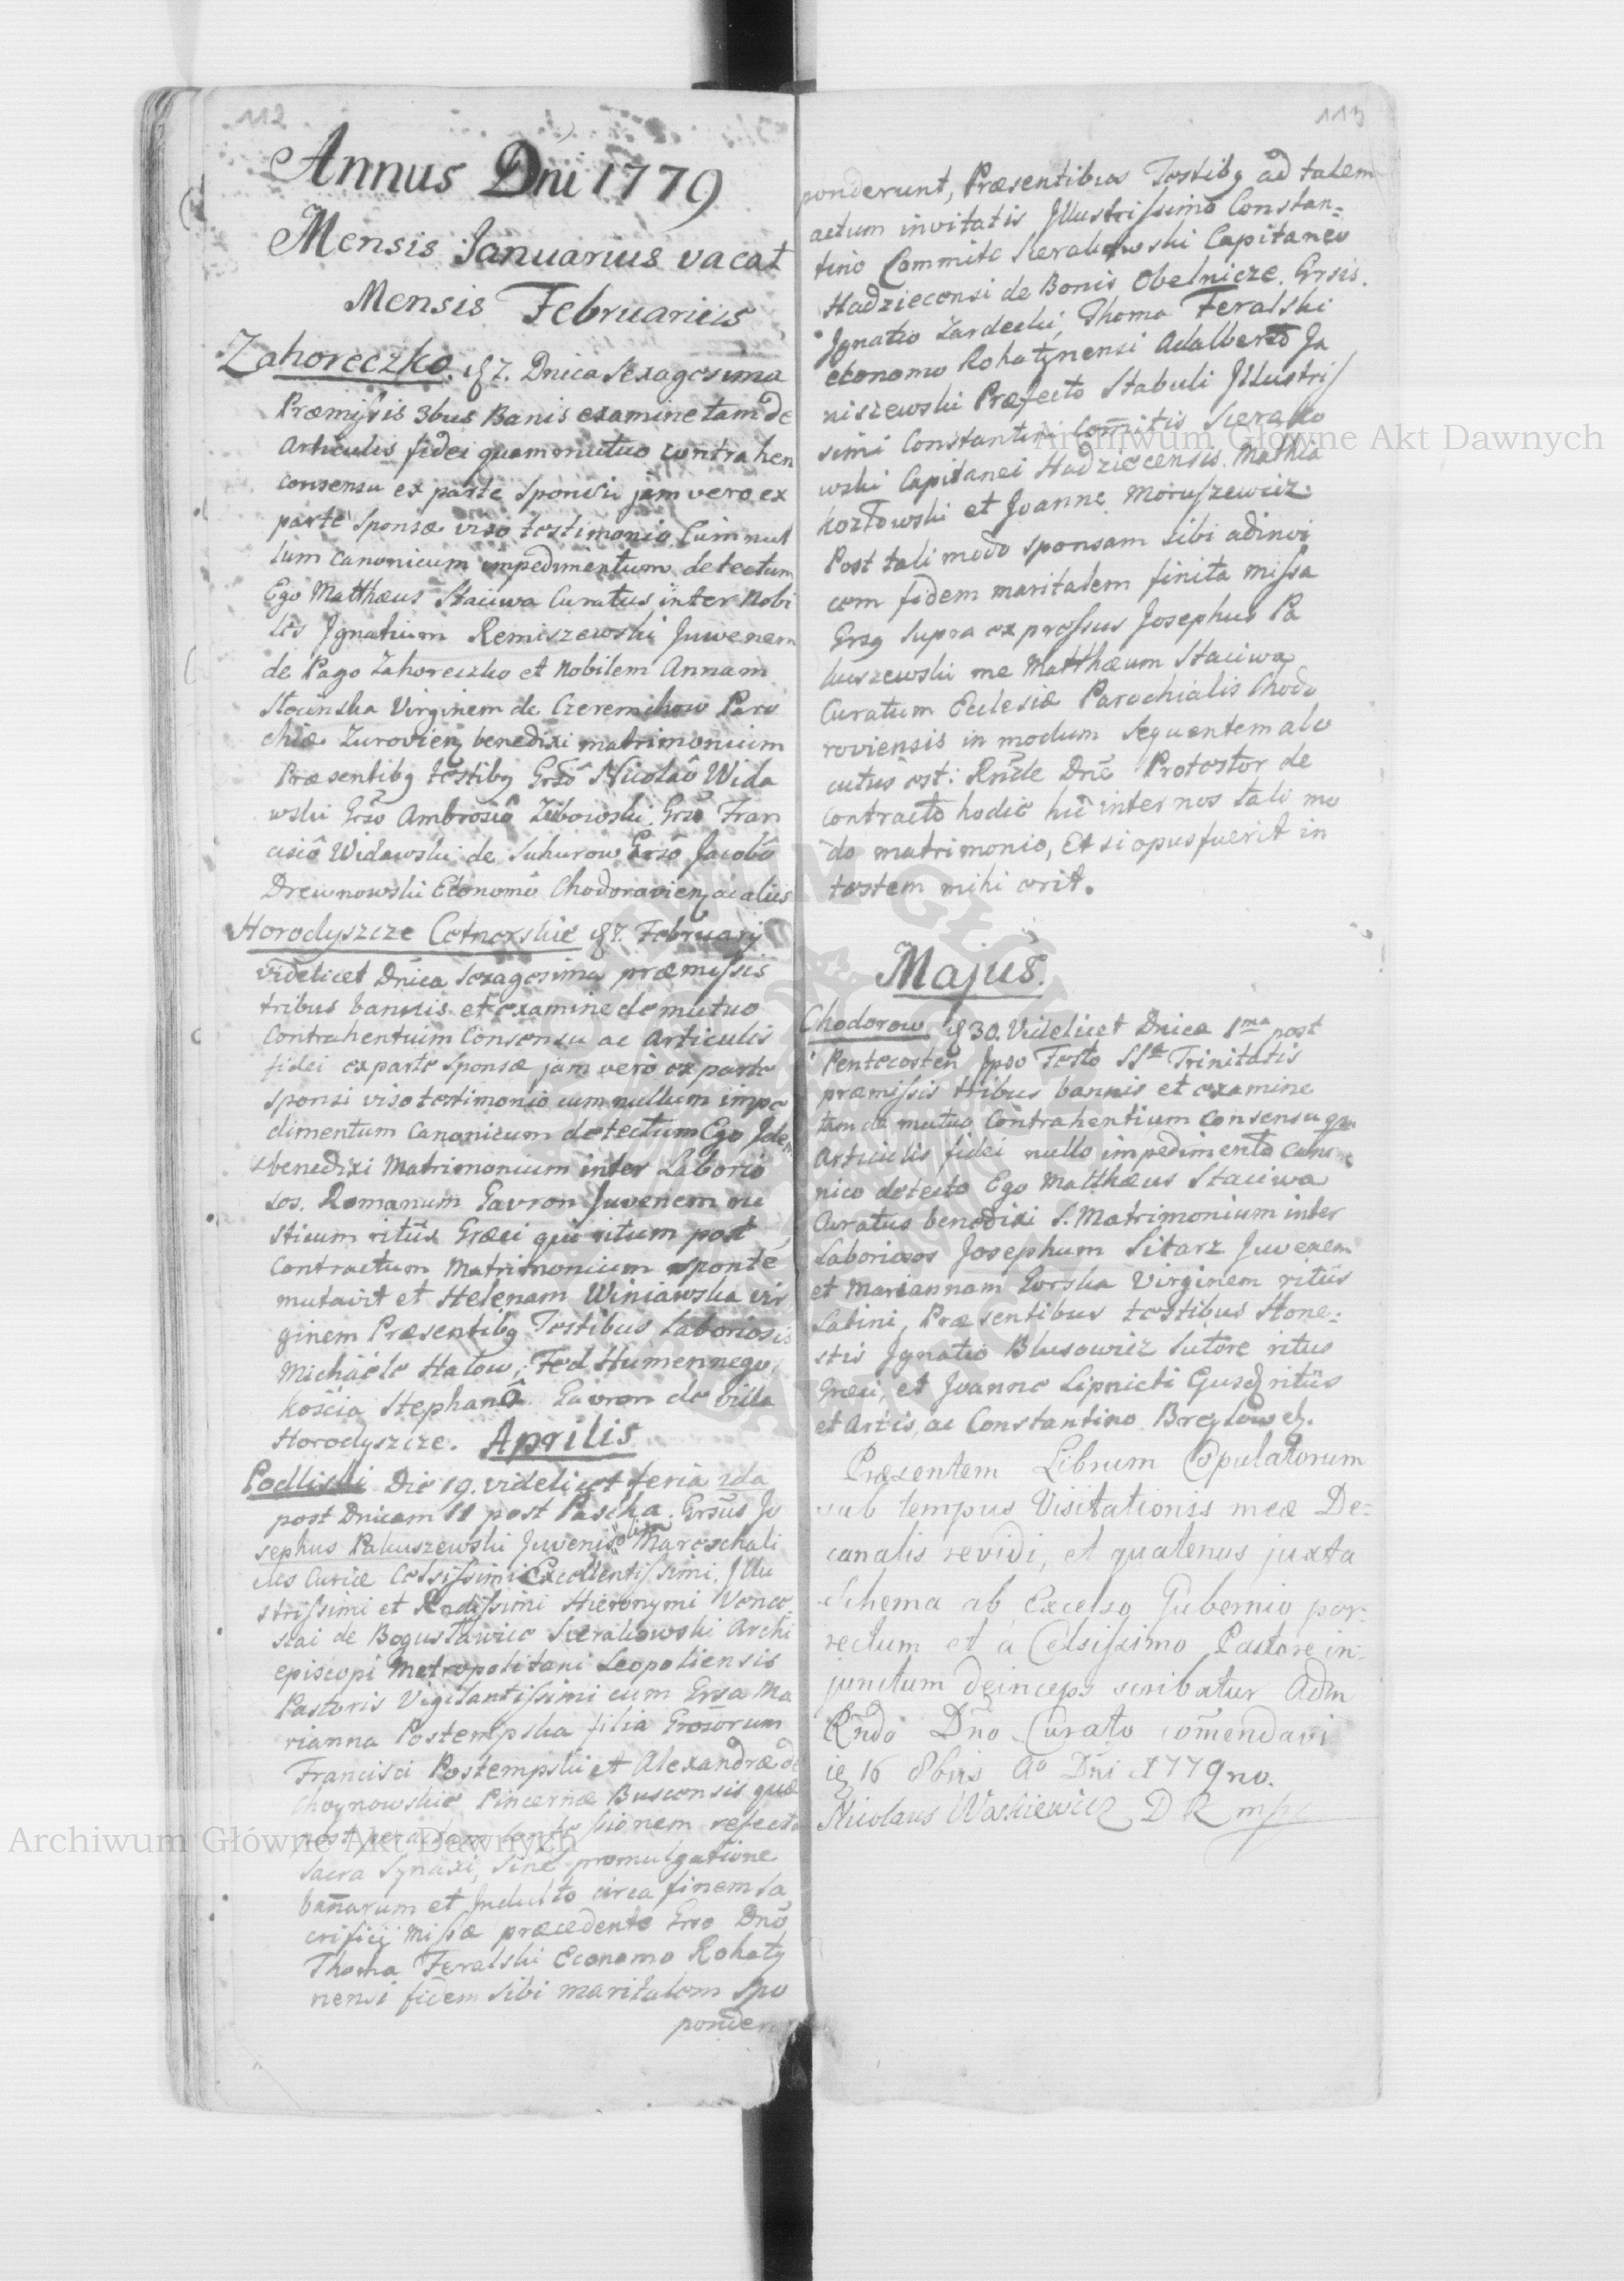 112
Annus Dni 1779
Mensis Januarius vacat
Mensis Februarius
Zahoreczko. 7. Dnica Sexagesima
Præmissis 3bus Banis examine tam de
Articulis fidei quam mutuo contrahen
consensu ex parte Sponsi jam vero ex
parte Sponsæ viso testimonio Cum nul
lum canonicum impedimentum detectum
Ego Matthæus Staciwa Curatus inter Nobi
les Ignatium Remiszewski Juwenem
de Pago Zahoreczko et Nobilem Annam
Virginem de Czeremchow Paro
chiæ Zurovien benedixi matrimonium
Præsentibg testibg Grso Nicolao Wida
wski Grso Ambrosio Grso Fran
cisco Widawski de Suhurow Grso Jacobo
Drewnowski Economo Chodoravien ac aliis
Horodyszcze Cetnerskie 7. Februarij
videlicet Dnica Sexagesima præmissis
tribus bannis et examine de mutuo
Contrahentium Consensu ac Articulis
fidei ex parte Sponsæ jam vero ex parte
sponsi viso testimonio cum nullum impe
dimentum Canonicum detectum Ego Idem
benedixi Matrimonium inter Laborio
sos. Romanum Gavron Juvenem ru
sticum ritus Græci qui ritum post
Contractum Matrimonium sponte
mutavit et Helenam Winiawska vir
ginem Præsentibg Testibus Laboriosis
Michaele Hatow, Fed Humennego,
Kościa Stephano Gavron de villa
Horodyszcze. Aprilis
Podliski Die 19. videlicet feria 2da
post Dnicam II post Pascha. Grsus Jo
sephus Pakuszewski Juvenis olim Mareschali
Curiæ Celsissimi Excellentissimi. Illu
strissimi et Rndissimi Hieronymi Wence
slai de Bogusławice Sierakowski Archi
episcopi Metropolitani Leopoliensis
Pastoris Vigilantissimi cum Grsa Ma
rianna Postempska filia Grosorum
Francisci Postempski et Alexandræ de
Choynowskie Pincernæ Buscensis quæ
post peractam confessionem refecta
sacra Synaxi, Sine promulgatione
bannarum et Indulto circa finem Sa
crificij Missæ præcedente Grso Dno
Thoma Feralski Economo Rohaty
nensi fidem Sibi maritalem Spo
ponder
113
ponderunt, Præsentibus Testibg ad talem
actum invitatis Illustrissimo Constan=
tino Commite Sierakowski Capitaneo
Hadziecensi de Bonis Obelnicze. Grsis.
Ignatio Zardecki, Thoma Feralski
economo Rohatynensi Adalberto Ja
niszewski Præfecto Stabuli Illustris
simi Constantini Comitis Sierako
wski Capitanei Hadziecensis. Mathia
Kozłowski et Joanne Moruszewicz.
Post tali modo sponsam sibi adinvi
cem fidem maritalem finita missa
Grsg Supra expressus Josephus Pa
kuszewski me Matthæum Staciwa
Curatum Ecclesiæ Parochialis Chodo
roviensis in modum Sequentem alo
cutus est: Rnde Dne Protestor de
contracto hodie hic inter nos tali mo
do matrimonio, Et si opus fuerit in
testem mihi erit.
Majus.
Chodorow. 30. Videlicet Dnica 1ma post
Pentecosten Ipso Festo SSæ Trinitatis
præmissis tribus bannis et examine
tam de mutuo Contrahentium Consensu qua
Articulis fidei nullo impedimento cano
nico detecto Ego Matthæus Staciwa
Curatus benedixi S. Matrimonium inter
Laboriosos Josephum Sitarz Juvenem
et Mariannam Gorska Virginem ritus
Latini, Præsentibus testibus Hone=
stis Ignatio Blusowicz Sutore ritus
Græci, et Joanne Lipnicki ritus
et Artis, ac Constantino
Præsentem Librum Copulatorum
sub tempus Visitationis meæ De=
canalis revidi, et quatenus juxta
Schema ab Excelso Gubernio por=
rectum et a Celsissimo Pastore in=
junctum deinceps scribatur Adm
Rndo Dno Curato comendavi
16 8bris Ao Dni 1779no.
Nicolaus Waskiewicz D R mpp
Archiwum Główne Akt Dawnych
Archiwum Główne Akt Dawnych